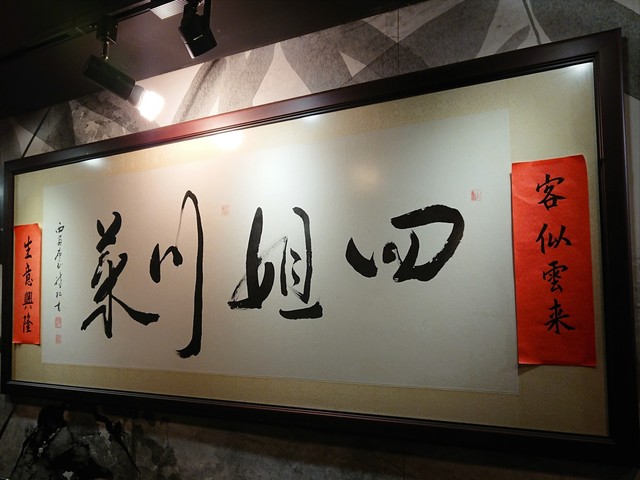 客似雲来
四姐川菜
生意興隆